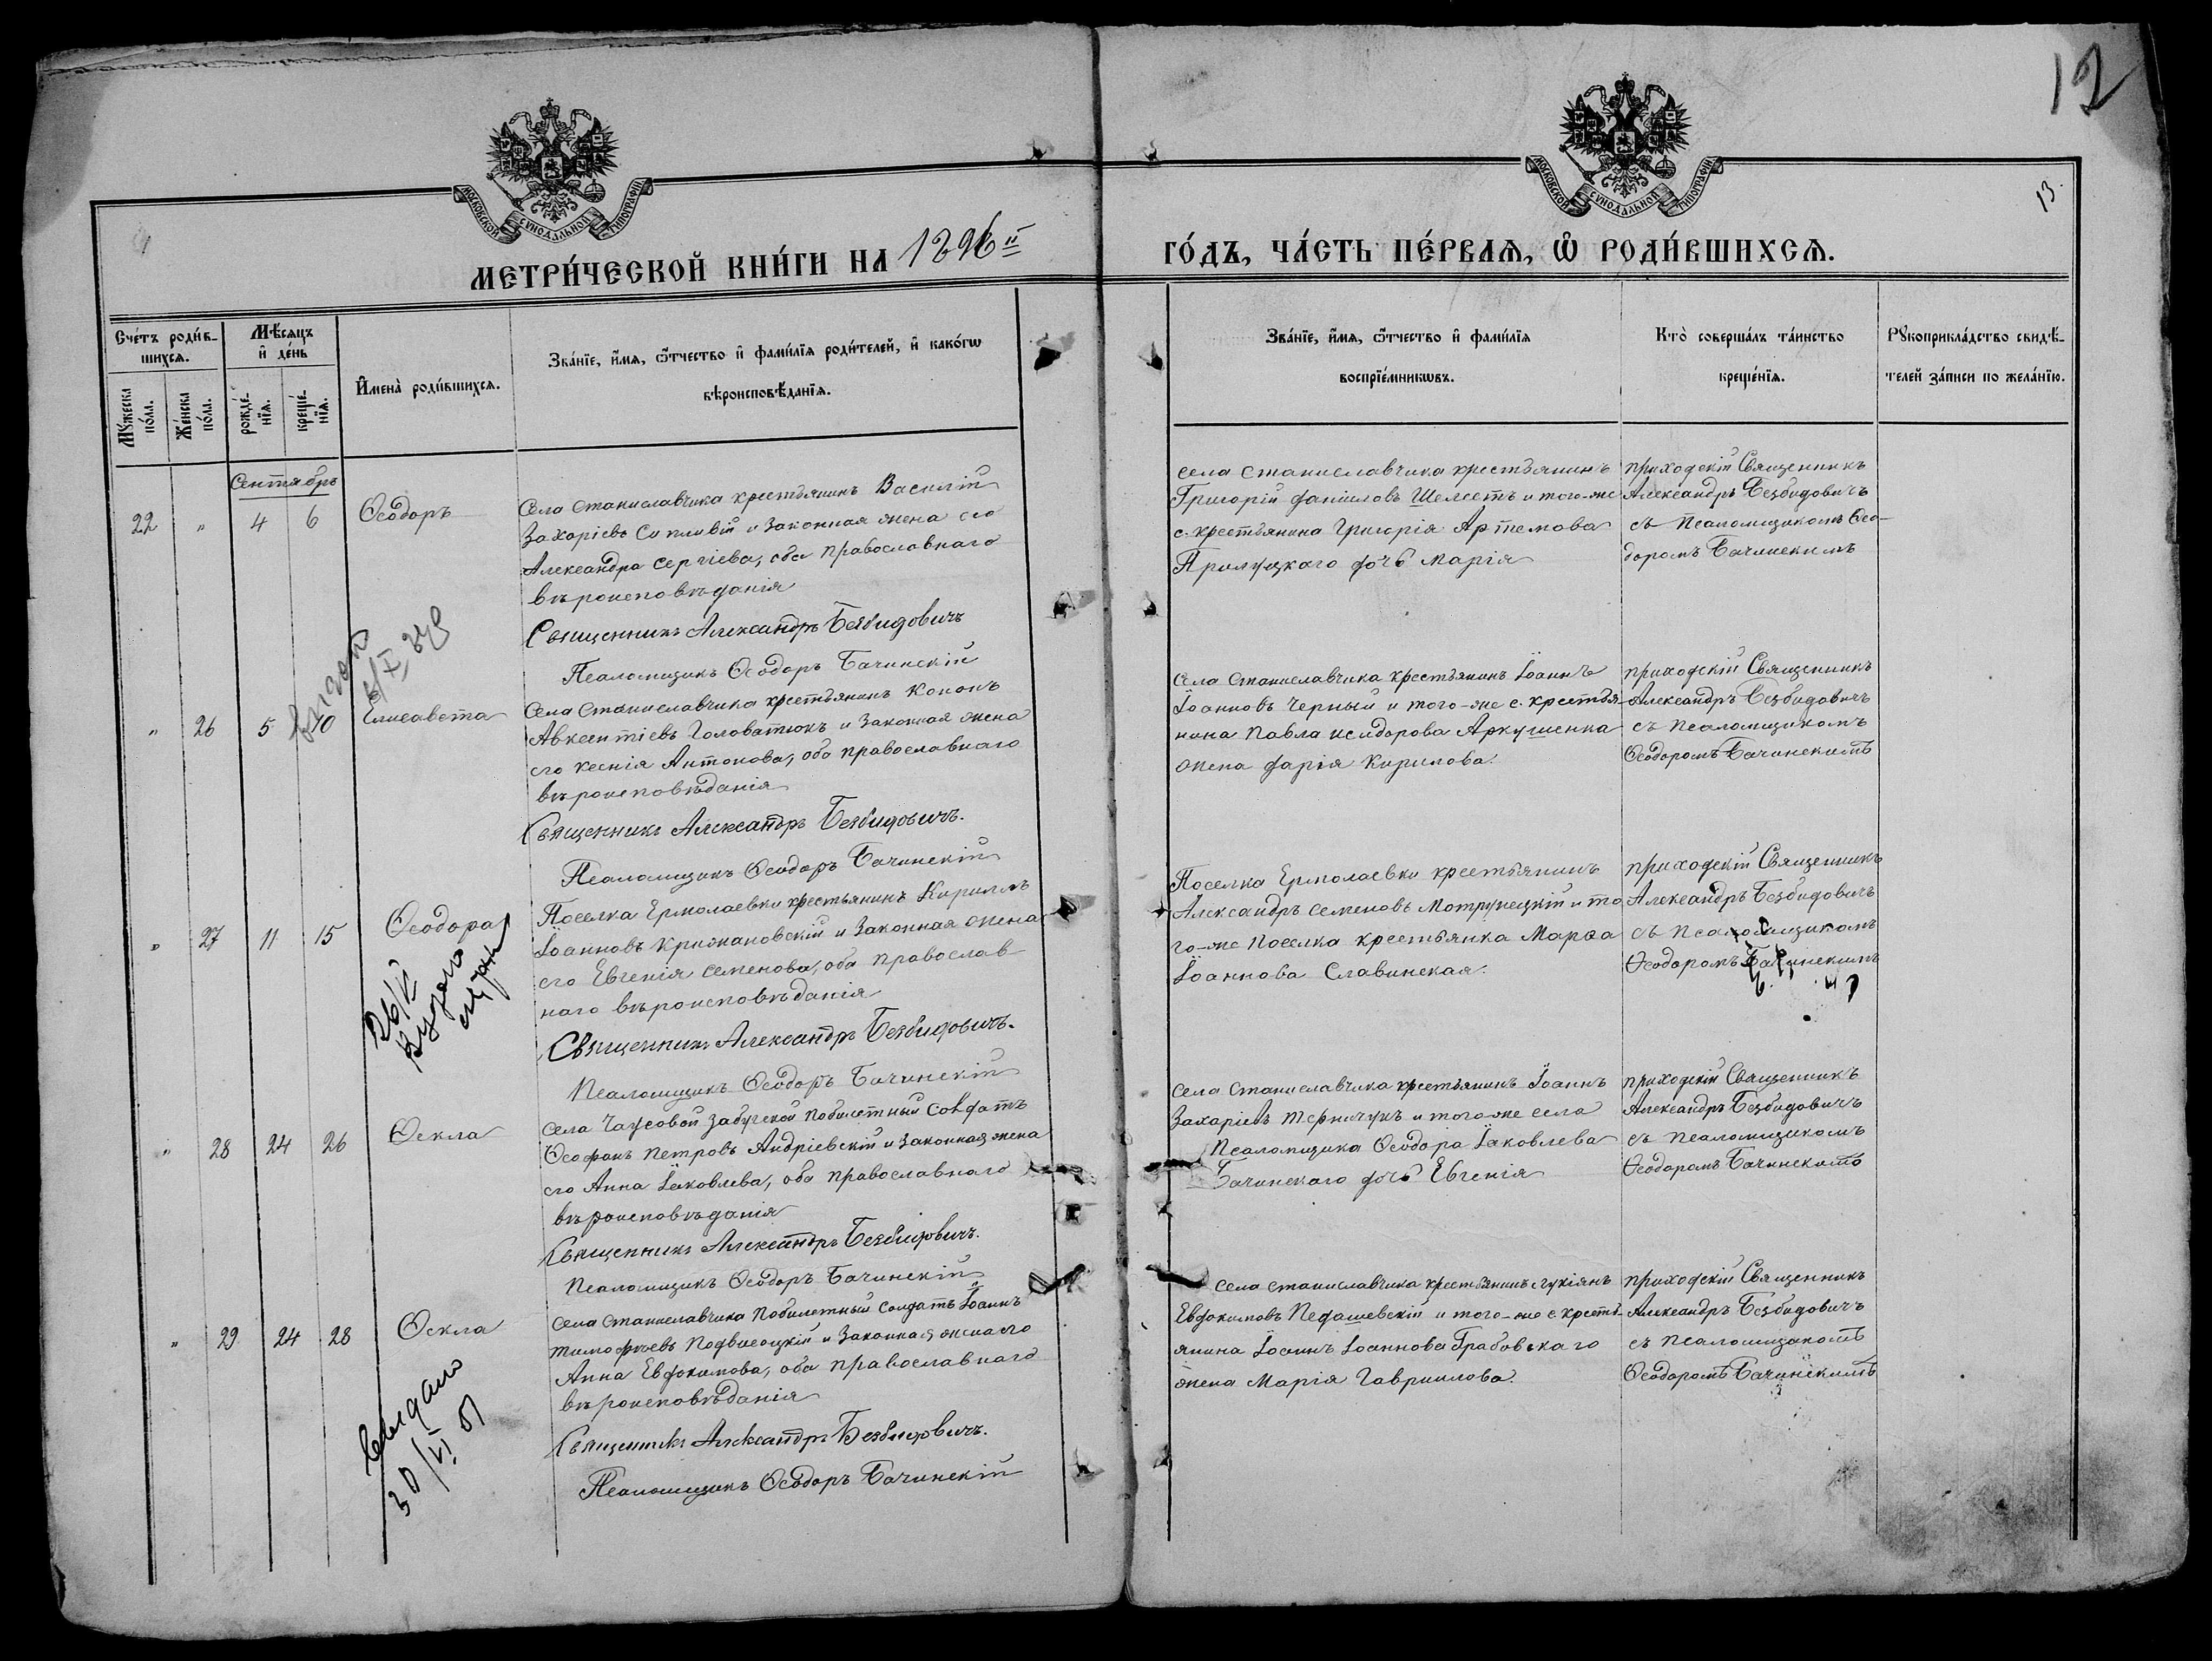 12
13.
МОСКОВСКОЙ СѴНОДАЛЬНОЙ ТИПОГРАФІИ
МОСКОВСКОЙ СѴНОДАЛЬНОЙ ТИПОГРАФІИ
МЕТРИ́ЧЕСКОЙ КНИ́ГИ НА 1896 й
ГО́ДЪ, ЧА́СТЬ ПЕ́РВАѦ, Ѡ҆ РОДИ́ВШИХСѦ.
Сче́тъ роди́в-
шихся.
Мꙋ́жеска
по́ла.
Же́нска
по́ла.
Мѣ́сяцъ
и҆ де́нь
рожде́-
нїя.
креще́-
нїя.
И҆мена̀ роди́вшихся.
Зва́нїе, и҆́мя, ѻ҆́тчество и҆ фами́лїя роди́телей, и҆ како́гѡ
вѣроисповѣ́данїя.
Зва́нїе, и҆́мя, ѻ҆́тчество и҆ фами́лїя
воспрїе́мникѡвъ.
Кто̀ соверша́лъ та́инство
креще́нїя.
Рꙋкоприкла́дство свидѣ́-
телей за́писи по жела́нїю.
Сентябрь
22 " 4 6
Ѳеодоръ
Села Станиславчика крестьянинъ Василій
Захаріевъ Сипливій и законная жена его
Александра Сергіева, оба православнаго
вѣроисповѣданія
Священникъ Александръ Безбидовичъ
Псаломщикъ Ѳеодоръ Бачинскій
села Станиславчика крестьянинъ
Григорій Даніиловъ Шелестъ и того-же
с. крестьянина Григорія Артемова
Прилуцкаго дочь Марія
приходскій Священникъ
Александръ Безбидовичъ
съ Псаломщикомъ Ѳео-
доромъ Бачинскимъ
" 26 5 10
Елисавета
Села Станиславчика крестьянинъ Кононъ
Авксентіевъ Головатюкъ и законная жена
его Ксенія Антонова, оба православнаго
вѣроисповѣданія
Священникъ Александръ Безбидовичъ.
Псаломщикъ Ѳеодоръ Бачинскій
Села Станиславчика крестьянинъ Іоаннъ
Іоанновъ Черный и того-же с. крестья-
нина Павла Исидорова Аркушенка
жена Дарія Кирилова.
приходскій Священникъ
Александръ Безбидовичъ
съ Псаломщикомъ
Ѳеодоромъ Бачинскимъ
" 27 11 15
Ѳеодора
Поселка Ермолаевки крестьянинъ Кириллъ
Іоанновъ Крижановскій и законная жена
его Евгенія Семенова, оба православ-
наго вѣроисповѣданія
Священникъ Александръ Безбидовичъ.
Псаломщикъ Ѳеодоръ Бачинскій
Поселка Ермолаевки крестьянинъ
Александръ Семеновъ Мотрунецкій и то
го-же поселка крестьянка Марѳа
Іоаннова Славинская.
приходскій Священникъ
Александръ Безбидовичъ
съ Псаломщикомъ
Ѳеодоромъ Бачинскимъ
" 28 24 26
Ѳекла
села Чаусовой Забугской побилетный солдатъ
Ѳеофанъ Петровъ Андріевскій и законная жена
его Анна Іаковлева, оба православнаго
вѣроисповѣданія
Священникъ Александръ Безбидовичъ.
Псаломщикъ Ѳеодоръ Бачинскій
села Станиславчика крестьянинъ Іоаннъ
Захаріевъ Терничукъ и того-же села
Псаломщика Ѳеодора Іаковлева
Бачинскаго дочь Евгенія
приходскій Священникъ
Александръ Безбидовичъ
съ псаломщикомъ
Ѳеодоромъ Бачинскимъ
" 29 24 28
Ѳекла
Выдано
30/VI 01
села Станиславчика побилетный солдатъ Іоаннъ
Тимоѳеевъ Подвысоцкій и законная жена его
Анна Евдокимова, оба православнаго
вѣроисповѣданія
Священникъ Александръ Безбидовичъ.
Псаломщикъ Ѳеодоръ Бачинскій
села Станиславчика крестьянинъ Лукіянъ
Евдокимовъ Педашевскій и того-же с крестъ-
янина Іоаннъ Іоаннова Грабовскаго
жена Марія Гавриилова.
приходскій Священникъ
Александръ Безбидовичъ
съ псаломщикомъ
Ѳеодоромъ Бачинскимъ